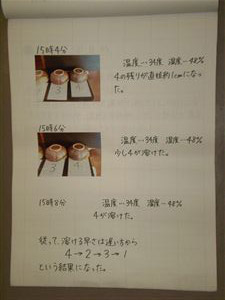 15時4分
温度…34度 湿度…48%
4の残りが直径約1cmになっ
た。
3 4
15時6分
温度…34度 湿度…48%
少し4が溶けた。
3 4
15時8分
温度…34度 湿度…48%
4が溶けた。
従って、溶ける早さは速い方から
4→2→3→1
という結果になった。